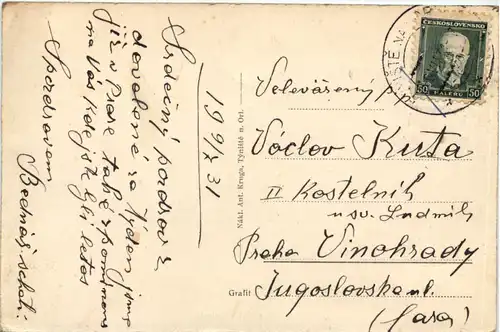 19 9/X 31
Srdečný pozdrav z
dovolené za týden jsme
již v Praze také vzpomínáme
na Vás kde jste byli letos
S pozdravem
Bednář
Nákl. Ant. Kruga, Týniště n. Orl.
Grafit
ČESKOSLOVENSKO
50 HALÉŘŮ 50
Velevážený p.
Václav Kuta
II Kostelník
u sv. Ludmily
Praha Vinohrady
Jugoslovská ul.
(Fara)